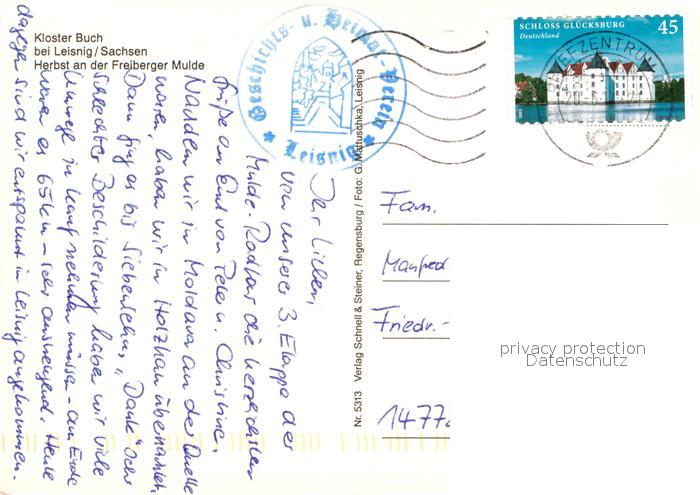 Kloster Buch
bei Leisnig / Sachsen
Herbst an der Freiberger Mulde
Geschichts- u. Heimat-Verein
Leisnig
SCHLOSS GLÜCKSBURG 45
Deutschland
Ihr Lieben,
von unserer 3. Etappe der
Mulde-Radtour die herzlichsten
Grüße an Euch von Peter u. Christine.
Nachdem wir in Moldava an der Quelle
waren, haben wir in Holzhau übernachtet.
Dann ging es bis Siebenlehn, "Dank" sehr
schlechter Beschilderung haben wir viele
Umwege in Kauf nehmen müssen - am Ende
waren es 65 km - sehr anstrengend. Heute
dagegen sind wir entspannt in Leisnig angekommen.
Nr. 5313 Verlag Schnell & Steiner, Regensburg / Foto: G. Mattuschka, Leisnig
Fam.
Manfred
Friedr.-
1477
privacy protection
Datenschutz